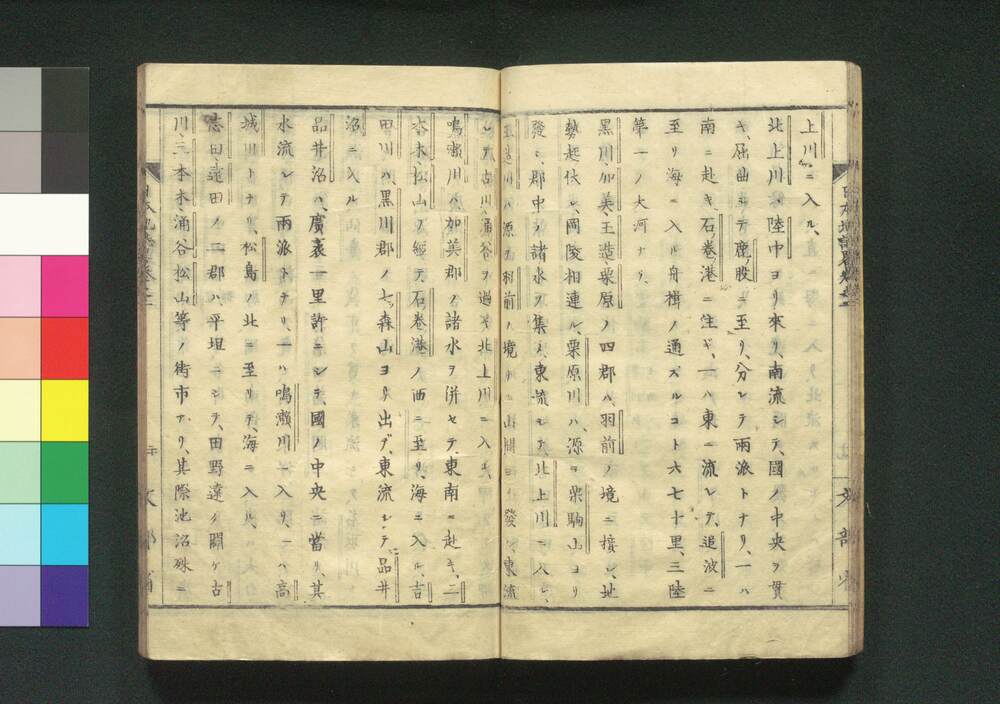 上川ニ入ル、
北上川ハ陸中ヨリ來リ、南流シテ、國ノ中央ヲ貫
キ、屈曲シテ鹿ノ股ニ至リ、分レテ兩派トナリ、一ハ
南ニ赴キ、石ノ卷港ニ注ギ、一ハ東ニ流レテ、追波ニ
至リ海ニ入ル舟楫ノ通ズルコト六七十里、三陸
第一ノ大河ナリ、
黑川、加美、玉造、栗原ノ四郡ハ、羽前ノ境ニ接シ、地
勢起伏シ、岡陵相連ル、栗原川ハ、源ヲ栗駒山ヨリ
發シ、郡中ノ諸水ヲ集メ、東流シテ、北上川ニ入ル、
玉造川ハ源ヲ羽前ノ境ノ山間ヨリ發シ、東流
シテ古川、涌谷ヲ過ギ、北上川ニ入ル、
鳴瀨川ハ、加美郡ノ諸水ヲ併セテ、東南ニ赴キ、三
本木、松山ヲ經テ、石卷港ノ西ニ至リ、海ニ入ル、吉
田川ハ、黑川郡ノ七ツ森山ヨリ出デ、東流シテ品井
沼ニ入ル
品井沼ハ、廣袤一里許ニシテ、國ノ中央ニ當リ、其
水流レテ兩派トナリ、一ハ鳴瀨川ニ入リ、一ハ高
城川トナリ、松島ノ北ニ至リテ、海ニ入ル、
志田、遠田ノ二郡ハ、平坦ニシテ、田野遠ク闢ケ古
川、三本木、涌谷、松山等ノ街市アリ、其際池沼殊ニ
日本地誌略卷之二
文部省